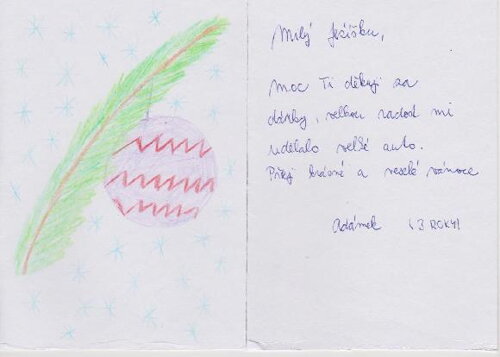 Milý Ježíšku,
moc Ti děkuji za
dárky, velkou radost mi
udělalo velké auto.
Přeji krásné a veselé vánoce
Adámek (3 ROKY)